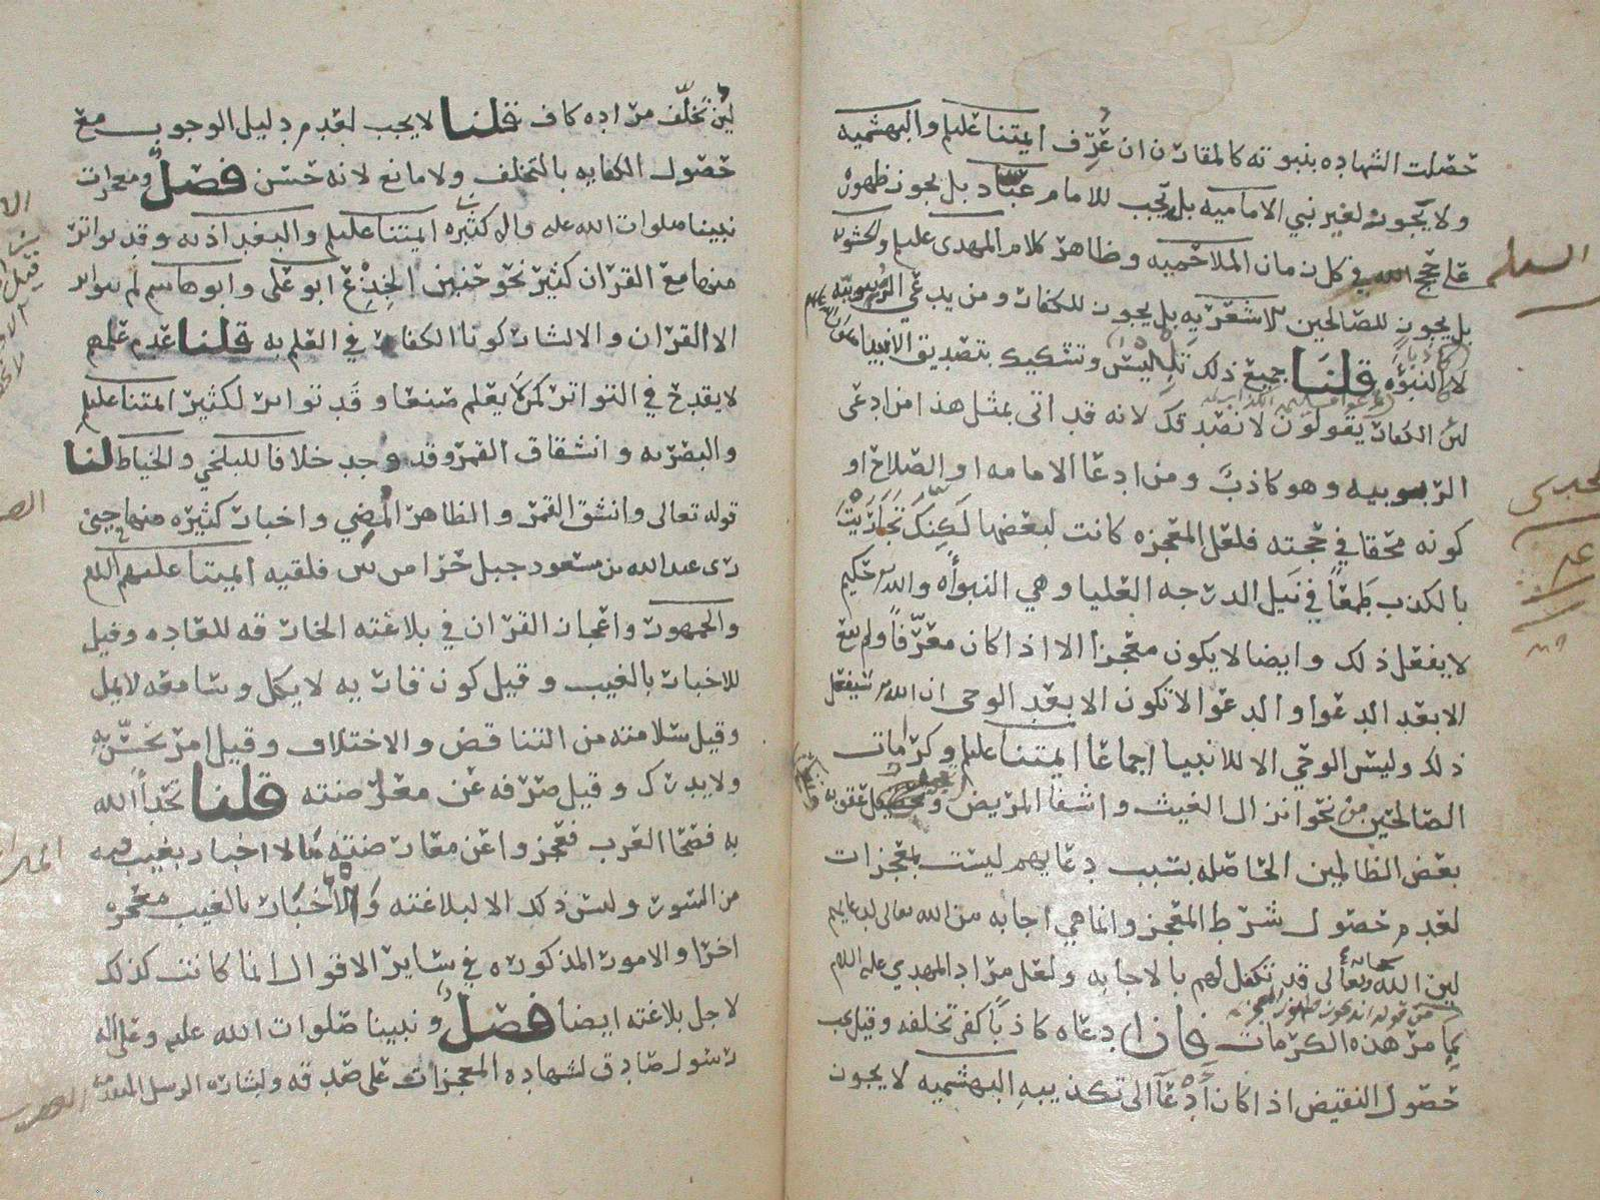 حصلت الشهاده بنبوته كالمقارن ان عرف ايمتنا عليلم والبهشميه
ولا يجوز لغير نبي الاماميه بل يجب للامام عباد بل يجوز ظهوره
على حجج الله في كل زمان الملاحميه وظاهر كلام المهدي عليلم والحشويه
بل يجوز للصالحين الاشعريه بل يجوز للكفار ومن يدعي الربوبيه
لا النبوءه قلنا جميع ذلك تلبيس وتشكيك بتصديق الانبيا
لئن الكفار يقولون لا نصدقك لانه قد اتى بمثل هذا من ادعى
الربوبيه وهو كاذب ومن ادعا الامامه او الصلاح او
كونه محقا في حجته فلعل المعجزه كانت لبعضها لكنك تجاريت
بالكذب طمعا في نيل الدرجه العليا وهي النبوأه والله حكيم
لا يفعل ذلك وايضا لا يكون معجزا الا اذا كان معرفا ولم يقع
الا بعد الدعوا والدعوا لا تكون الا بعد الوحي ان الله سيفعل
ذلك وليس الوحي الا للانبيا اجماعا ايمتنا عليلم وكرامات
الصالحين من نحو انزال الغيث واشفا المريض وتعجيل عقوبة
بعض الظالمين الحاصله بسبب دعايهم ليست بمعجزات
لعدم حصول شرط المعجز وانما هي اجابه من الله تعالى لدعايهم
لئن الله سبحانه وتعالى قد تكفل لهم بالاجابه ولعل مراد المهدي عليه اللم
بما مر هذه الكرمات فان ادعاه كاذبا كفى تخلفه وقيل يجب
حصول النقيض اذا كان ادعآ الى تكذيبه البهشميه لا يجوز
لئن تخلف مراده كاف قلنا لا يجب لعدم دليل الوجوب مع
حصول الكفايه بالتخلف ولا مانع لانه حسن فصل ومعجزات
نبينا صلوات الله عليه واله كثيره ايمتنا عليلم والبغداذيه وقد تواتر
منها مع القران كثير نحو حنين الجذع ابو علي وابو هاشم لم يتواتر
الا القران والا لشاركونا الكفار في العلم به قلنا عدم علمهم
لا يقدح في التواتر كمن لا يعلم صنعا وقد تواتر لكثير ايمتنا عليلم
والبصريه وانشقاق القمر وقد وجد خلافا للبلخي والخياط لنا
قوله تعالى وانشق القمر والظاهر المضي واخبار كثيره منها حين
رءى عبد الله بن مسعود جبل حرا من بين فلقيه ايمتنا عليهم اللم
والجمهور واعجاز القران في بلاغته الخارقه للعاده وقيل
للاخبار بالغيب وقيل كون قاريه لا يكل وسامعه لا يمل
وقيل سلامته من التناقض والاختلاف وقيل امر يحس به
ولا يدرك وقيل صرفه عن معارضته قلنا تحدا الله
به فصحا العرب فعجزوا عن معارضته مما لا اخبار بغيب فيه
من السور وليس ذلك الا لبلاغته والاخبار بالغيب معجزه
اخرا والامور المذكوره في ساير الاقوال انما كانت كذلك
لاجل بلاغته ايضا فصل ونبينا صلوات الله عليه وعلى اله
رسول صادق لشهادة المعجزات على صدقه ولبشارة الرسل المتقدمين